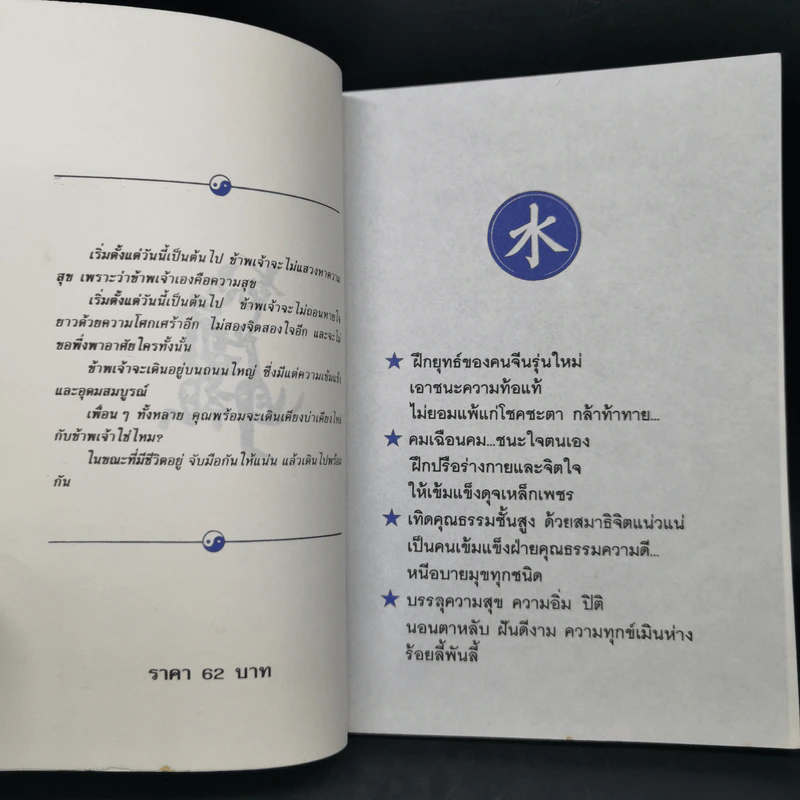 เริ่มตั้งแต่วันนี้เป็นต้นไป ข้าพเจ้าจะไม่แสวงหาความ
สุข เพราะว่าข้าพเจ้าเองคือความสุข
เริ่มตั้งแต่วันนี้เป็นต้นไป ข้าพเจ้าจะไม่ถอนหายใจ
ยาวด้วยความโศกเศร้าอีก ไม่สองจิตสองใจอีก และจะไม่
ขอพึ่งพาอาศัยใครทั้งนั้น
ข้าพเจ้าจะเดินอยู่บนถนนใหญ่ ซึ่งมีแต่ความเข้มแข็ง
และอุดมสมบูรณ์
เพื่อนๆ ทั้งหลาย คุณพร้อมจะเดินเคียงบ่าเคียงไหล่
กับข้าพเจ้าใช่ไหม?
ในขณะที่มีชีวิตอยู่ จับมือกันให้แน่น แล้วเดินไปพร้อม
กัน
ราคา 62 บาท
水
★ ฝึกยุทธ์ของคนจีนรุ่นใหม่
เอาชนะความท้อแท้
ไม่ยอมแพ้แก่โชคชะตา กล้าท้าทาย...
★ คมเฉือนคม...ชนะใจตนเอง
ฝึกปรือร่างกายและจิตใจ
ให้เข้มแข็งดุจเหล็กเพชร
★ เทิดคุณธรรมชั้นสูง ด้วยสมาธิจิตแน่วแน่
เป็นคนเข้มแข็งฝ่ายคุณธรรมความดี...
หนีอบายมุขทุกชนิด
★ บรรลุความสุข ความอิ่ม ปิติ
นอนตาหลับ ฝันดีงาม ความทุกข์เมินห่าง
ร้อยลี้พันลี้